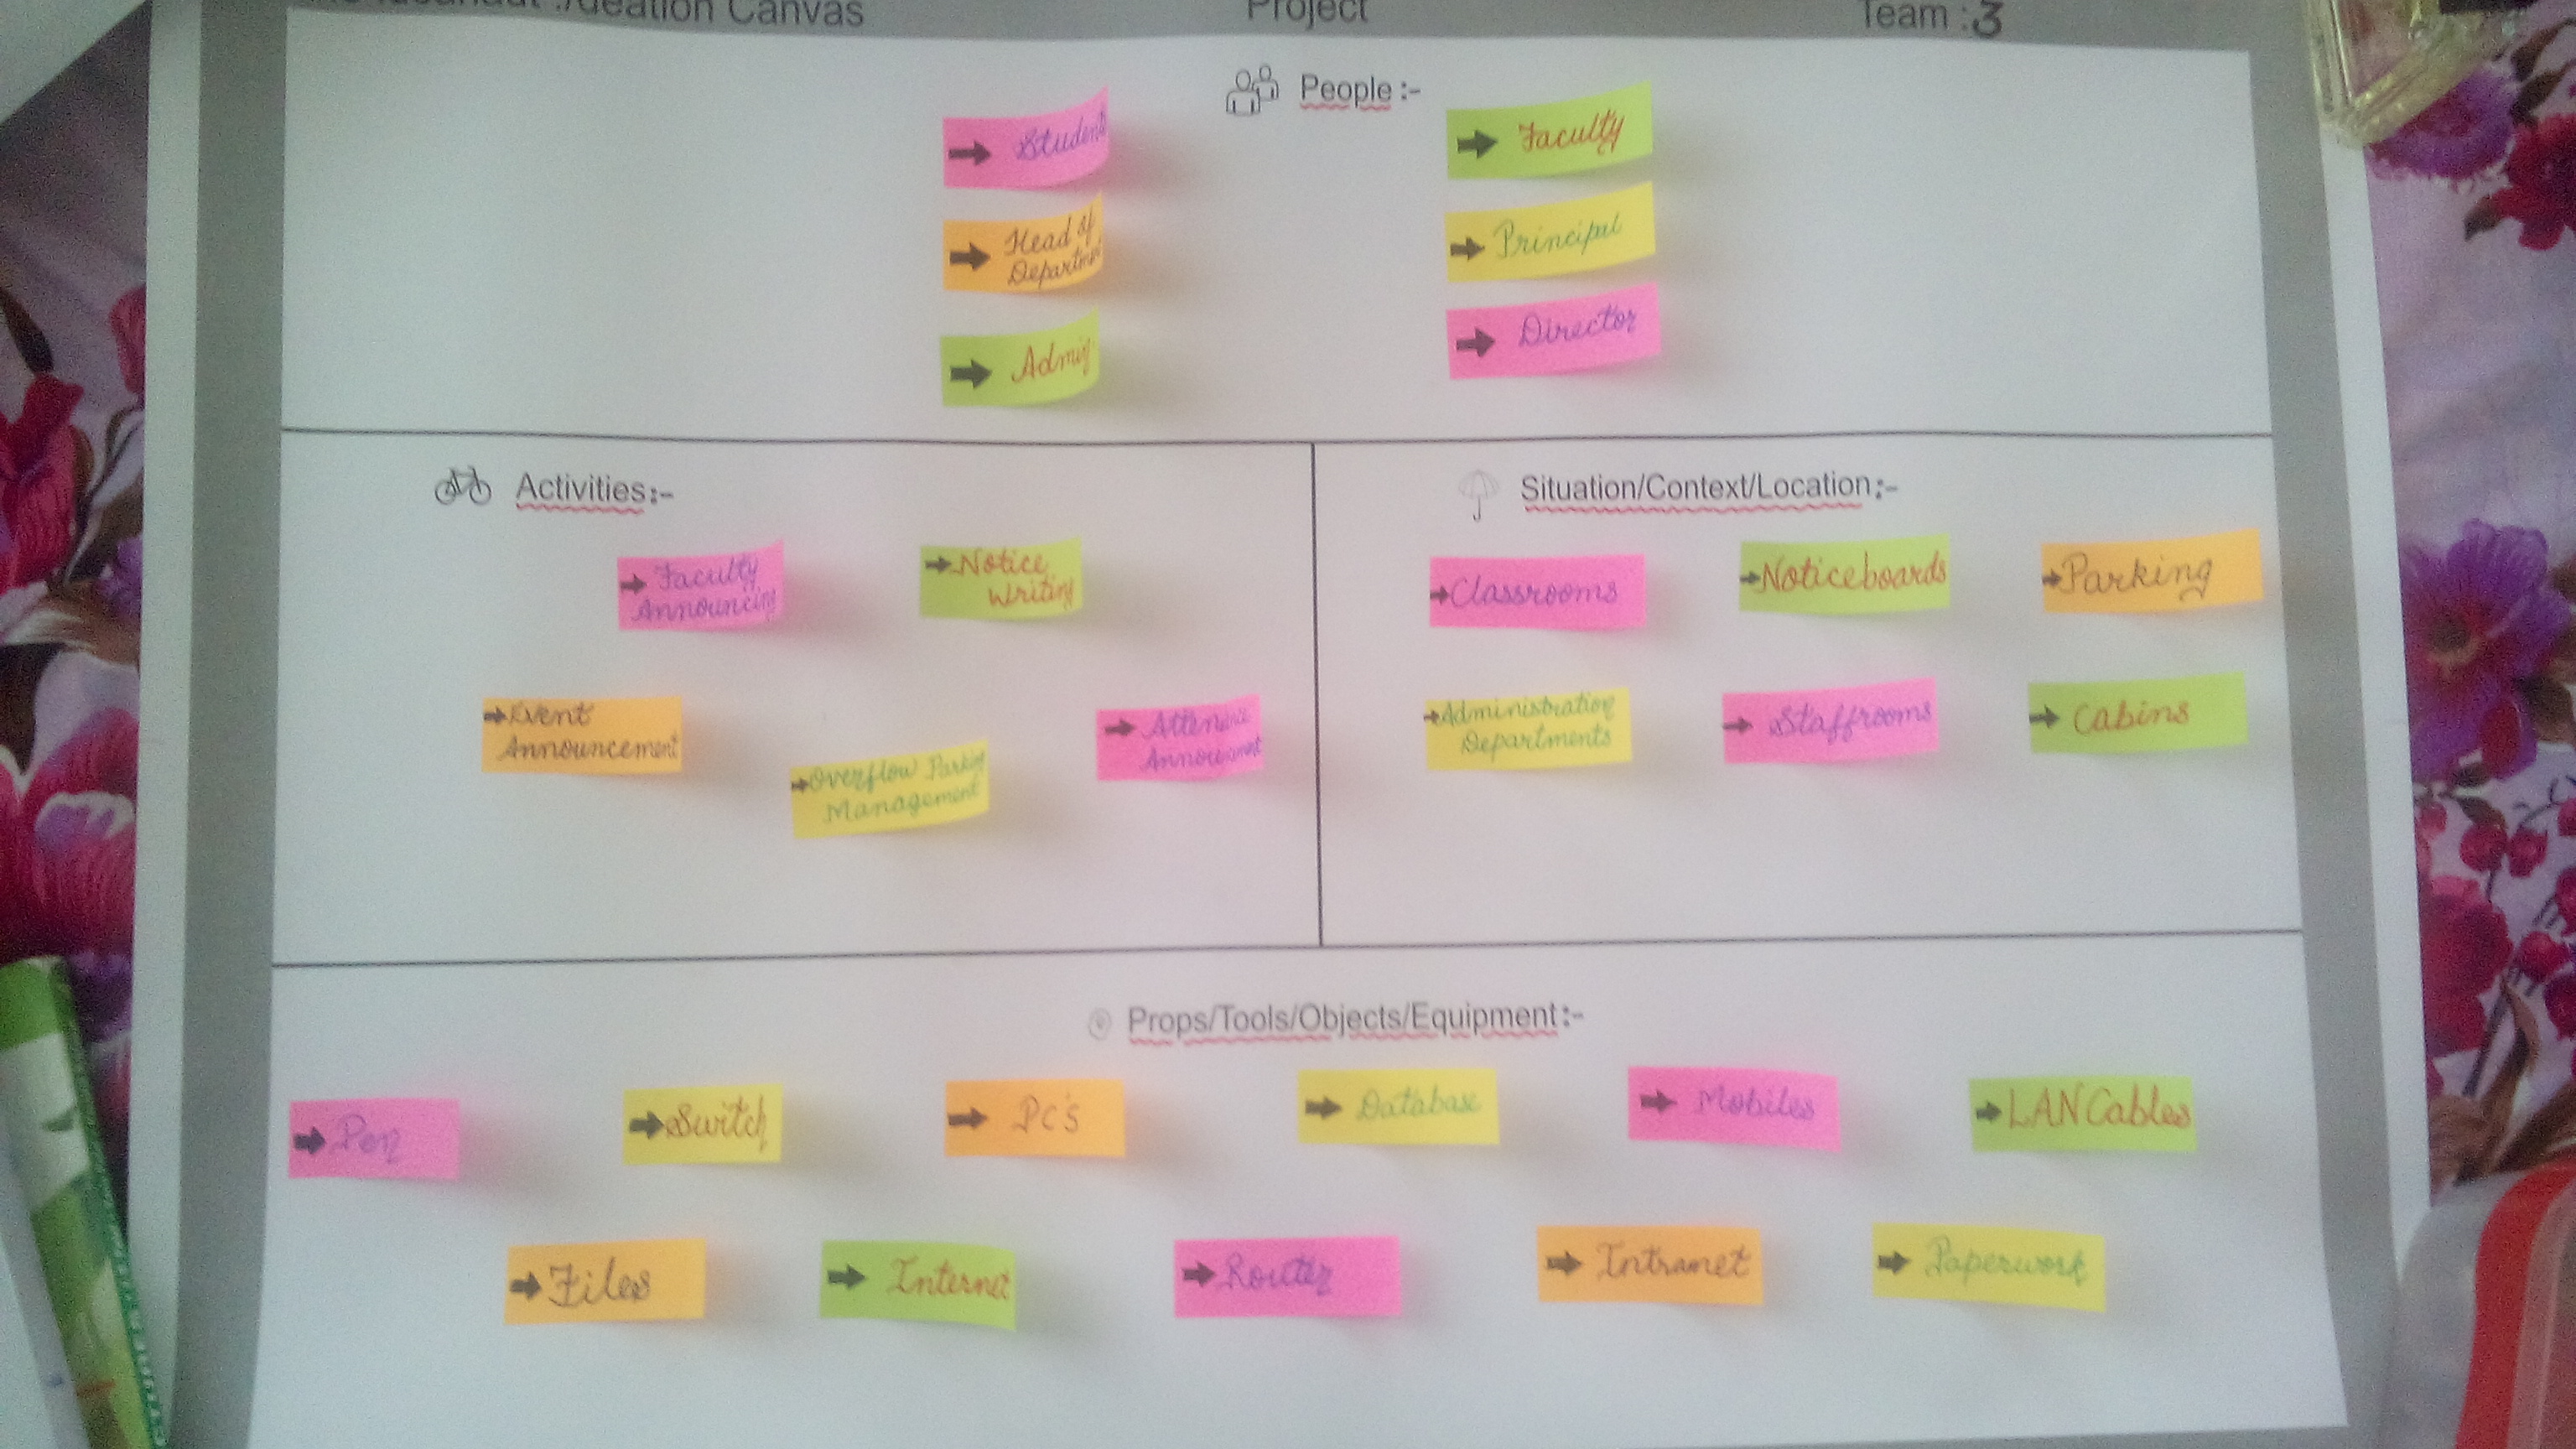 :Ideation Canvas
Project
Team :3
People :-
→ Students
→ Faculty
→ Head of
Department
→ Principal
→ Admin
→ Director
Activities:-
→ Faculty
Announcing
→ Notice
Writing
→ Event
Announcement
→ Overflow Parking
Management
→
Situation/Context/Location:-
→ Classrooms
→ Noticeboards
→ Parking
→ Administration
Departments
→ Staffrooms
→ Cabins
Props/Tools/Objects/Equipment:-
→ Pen
→ Switch
→ Pc's
→ Database
→ Mobiles
→ LAN Cables
→ Files
→ Internet
→ Router
→ Intranet
→ Paperwork